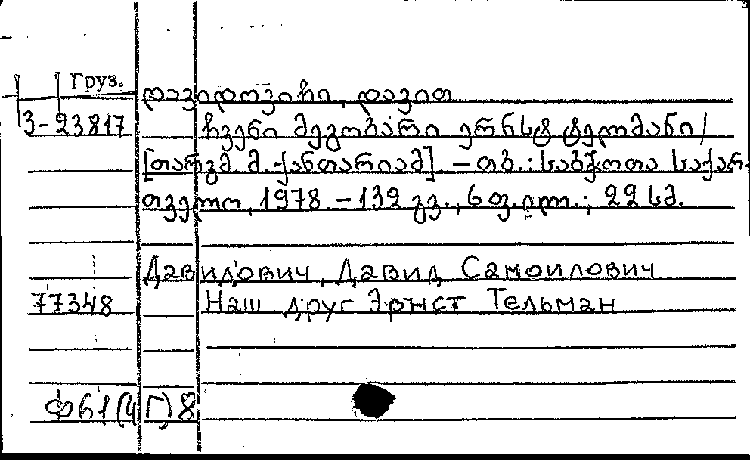 Груз.
დავიდოვიჩი, დავით
3-23817 ჩვენი მეგობარი ერნსტ ტელმანი/
[თარგმ. მ. ქანთარიამ]. – თბ.: საბჭოთა საქარ-
თველო, 1978. – 132 გვ., 6 ფ. ილ.; 22 სმ.
Давидович, Давид Самойлович
77348 Наш друг Эрнст Тельман
Ф61(4Г)8